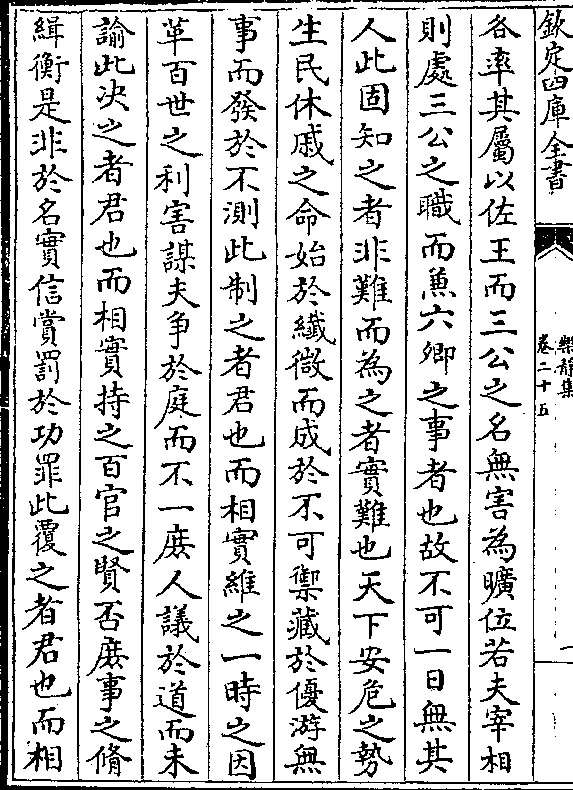 欽定四庫全書
樂静集
卷二十五
一
各率其屬以佐王而三公之名無害為曠位若夫宰相
則處三公之職而兼六卿之事者也故不可一日無其
人此固知之者非難而為之者實難也天下安危之勢
生民休戚之命始於纖微而成於不可禦藏於優游無
事而發於不測此制之者君也而相實維之一時之因
革百世之利害謀夫争於庭而不一庶人議於道而未
諭此决之者君也而相實持之百官之賢否庶事之脩
緝衡是非於名實信賞罰於功罪此覆之者君也而相